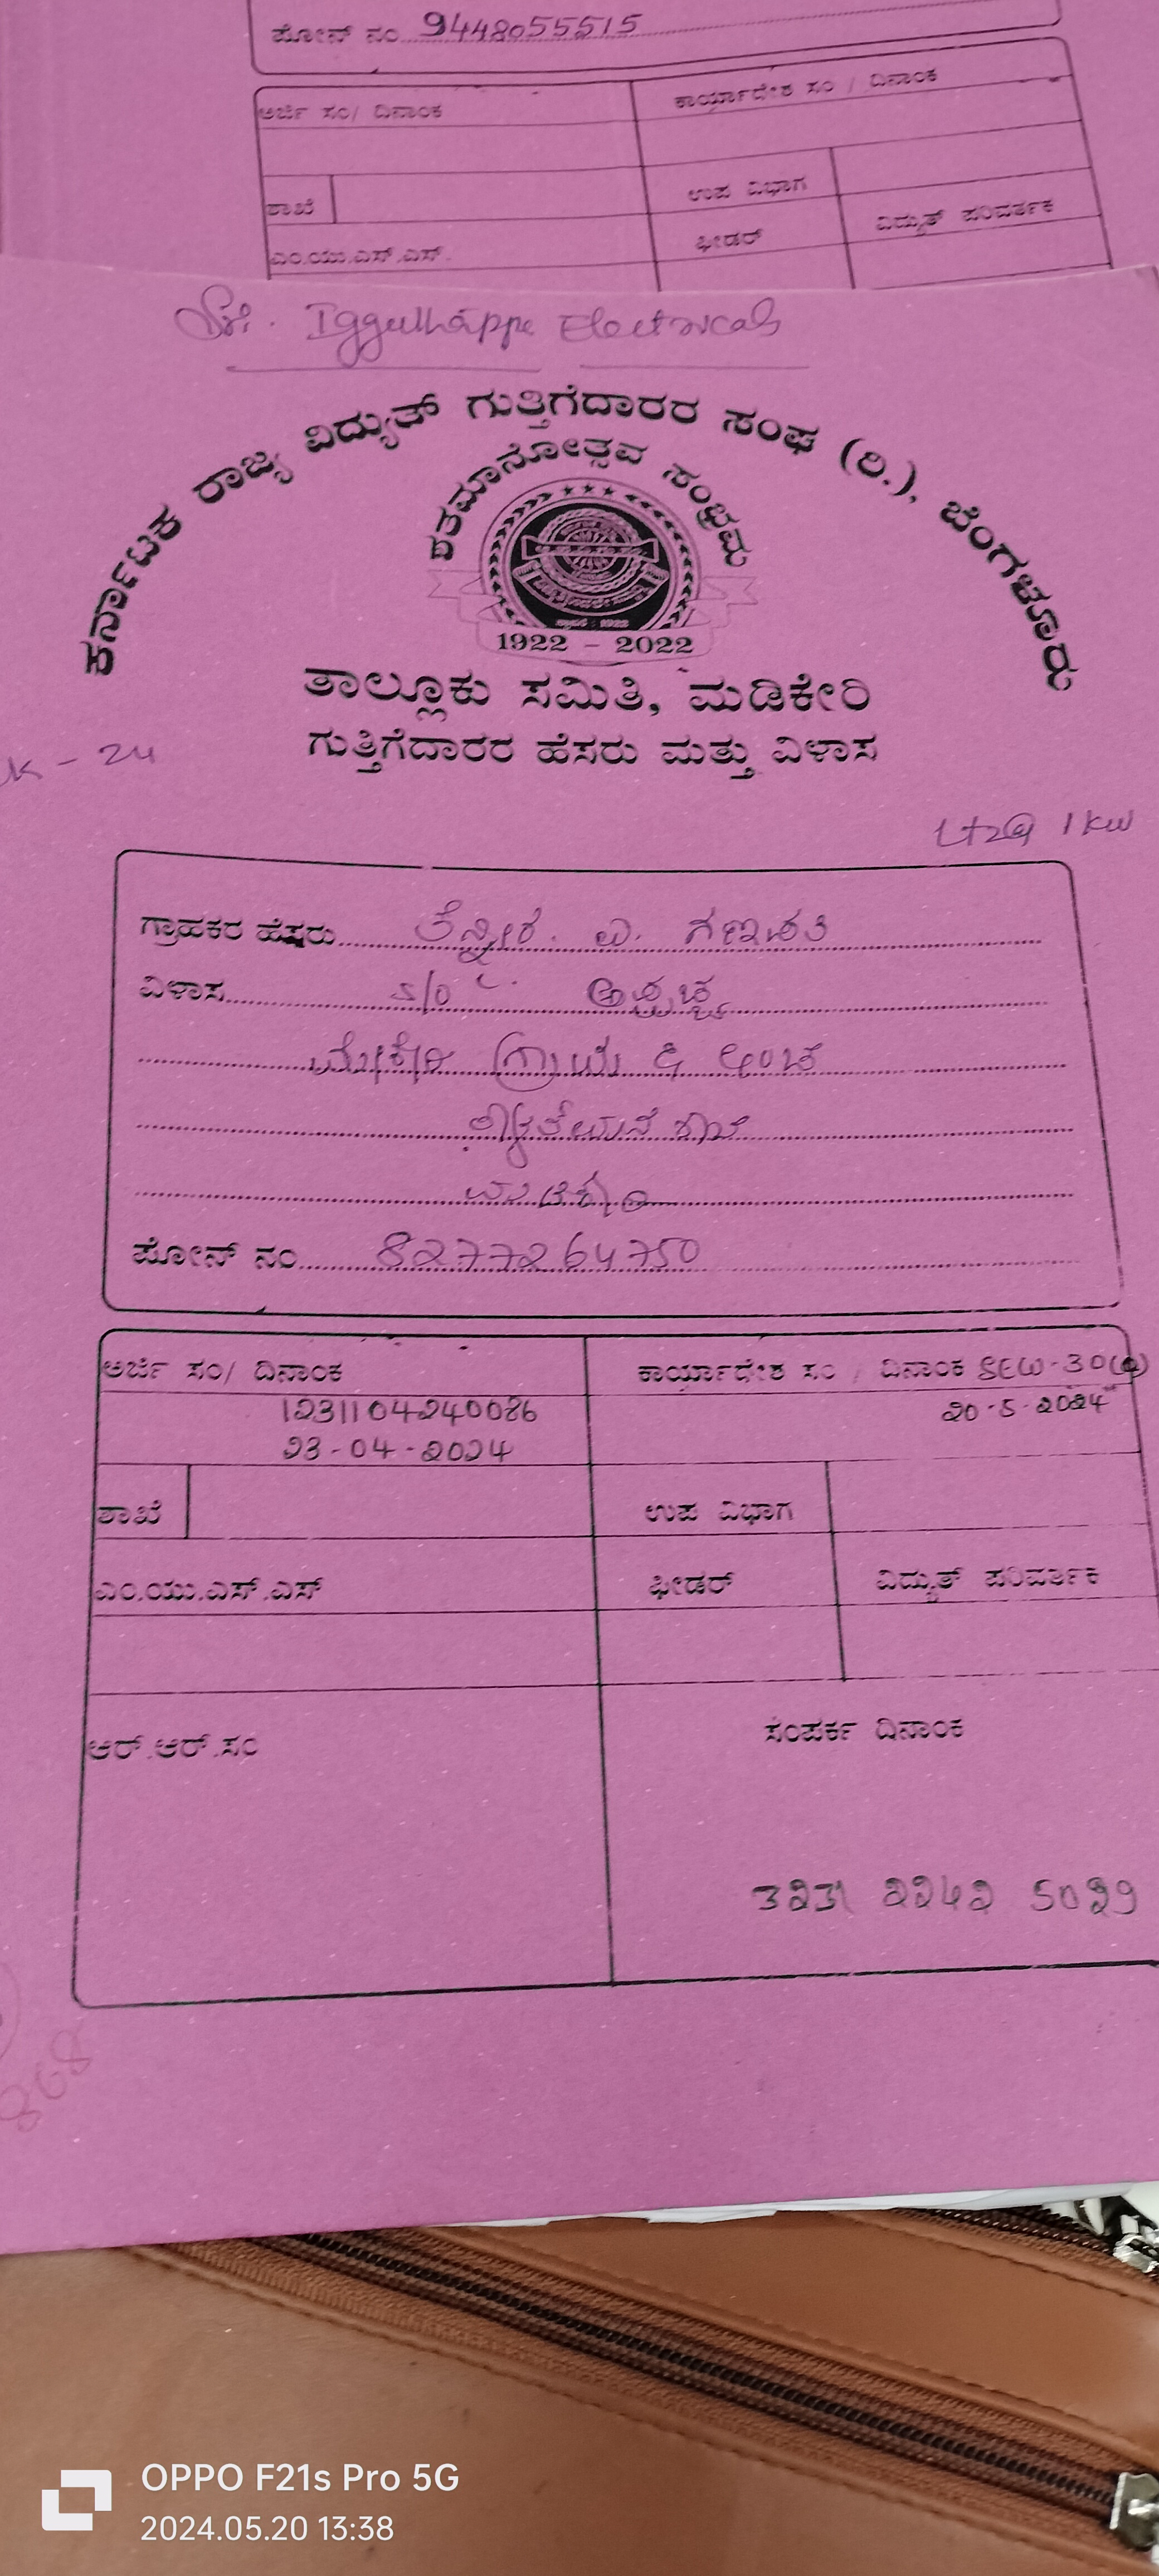 ಫೋನ್ ನಂ 9448055515
ಅರ್ಜಿ ಸಂ/ ದಿನಾಂಕ
ಕಾರ್ಯಾದೇಶ ಸಂ / ದಿನಾಂಕ
ಶಾಖೆ
ಉಪ ವಿಭಾಗ
ಎಂ.ಯು.ಎಸ್.ಎಸ್.
ಫೀಡರ್
ವಿದ್ಯುತ್ ಪರಿವರ್ತಕ
Sri. Igguthappe Electricals
ಕರ್ನಾಟಕ ರಾಜ್ಯ ವಿದ್ಯುತ್ ಗುತ್ತಿಗೆದಾರರ ಸಂಘ (ರಿ.), ಬೆಂಗಳೂರು
ಶತಮಾನೋತ್ಸವ ಸಂಭ್ರಮ
1922 - 2022
ತಾಲ್ಲೂಕು ಸಮಿತಿ, ಮಡಿಕೇರಿ
ಗುತ್ತಿಗೆದಾರರ ಹೆಸರು ಮತ್ತು ವಿಳಾಸ
K - 24
1 KW
ಗ್ರಾಹಕರ ಹೆಸರು ತೆನ್ನೀರ. ಎ. ಗಣಪತಿ
ವಿಳಾಸ S/o ಅಪ್ಪಚ್ಚ
ಮೇಕೇರಿ ಗ್ರಾಮ & ಅಂಚೆ
ಮಡಿಕೇರಿ
ಫೋನ್ ನಂ 8277264750
ಅರ್ಜಿ ಸಂ/ ದಿನಾಂಕ
ಕಾರ್ಯಾದೇಶ ಸಂ / ದಿನಾಂಕ SEW-30(a)
1231104240086
20-5-2024
23-04-2024
ಶಾಖೆ
ಉಪ ವಿಭಾಗ
ಎಂ.ಯು.ಎಸ್.ಎಸ್
ಫೀಡರ್
ವಿದ್ಯುತ್ ಪರಿವರ್ತಕ
ಆರ್.ಆರ್.ಸಂ
ಸಂಪರ್ಕ ದಿನಾಂಕ
3231 2242 5029
868
OPPO F21s Pro 5G
2024.05.20 13:38